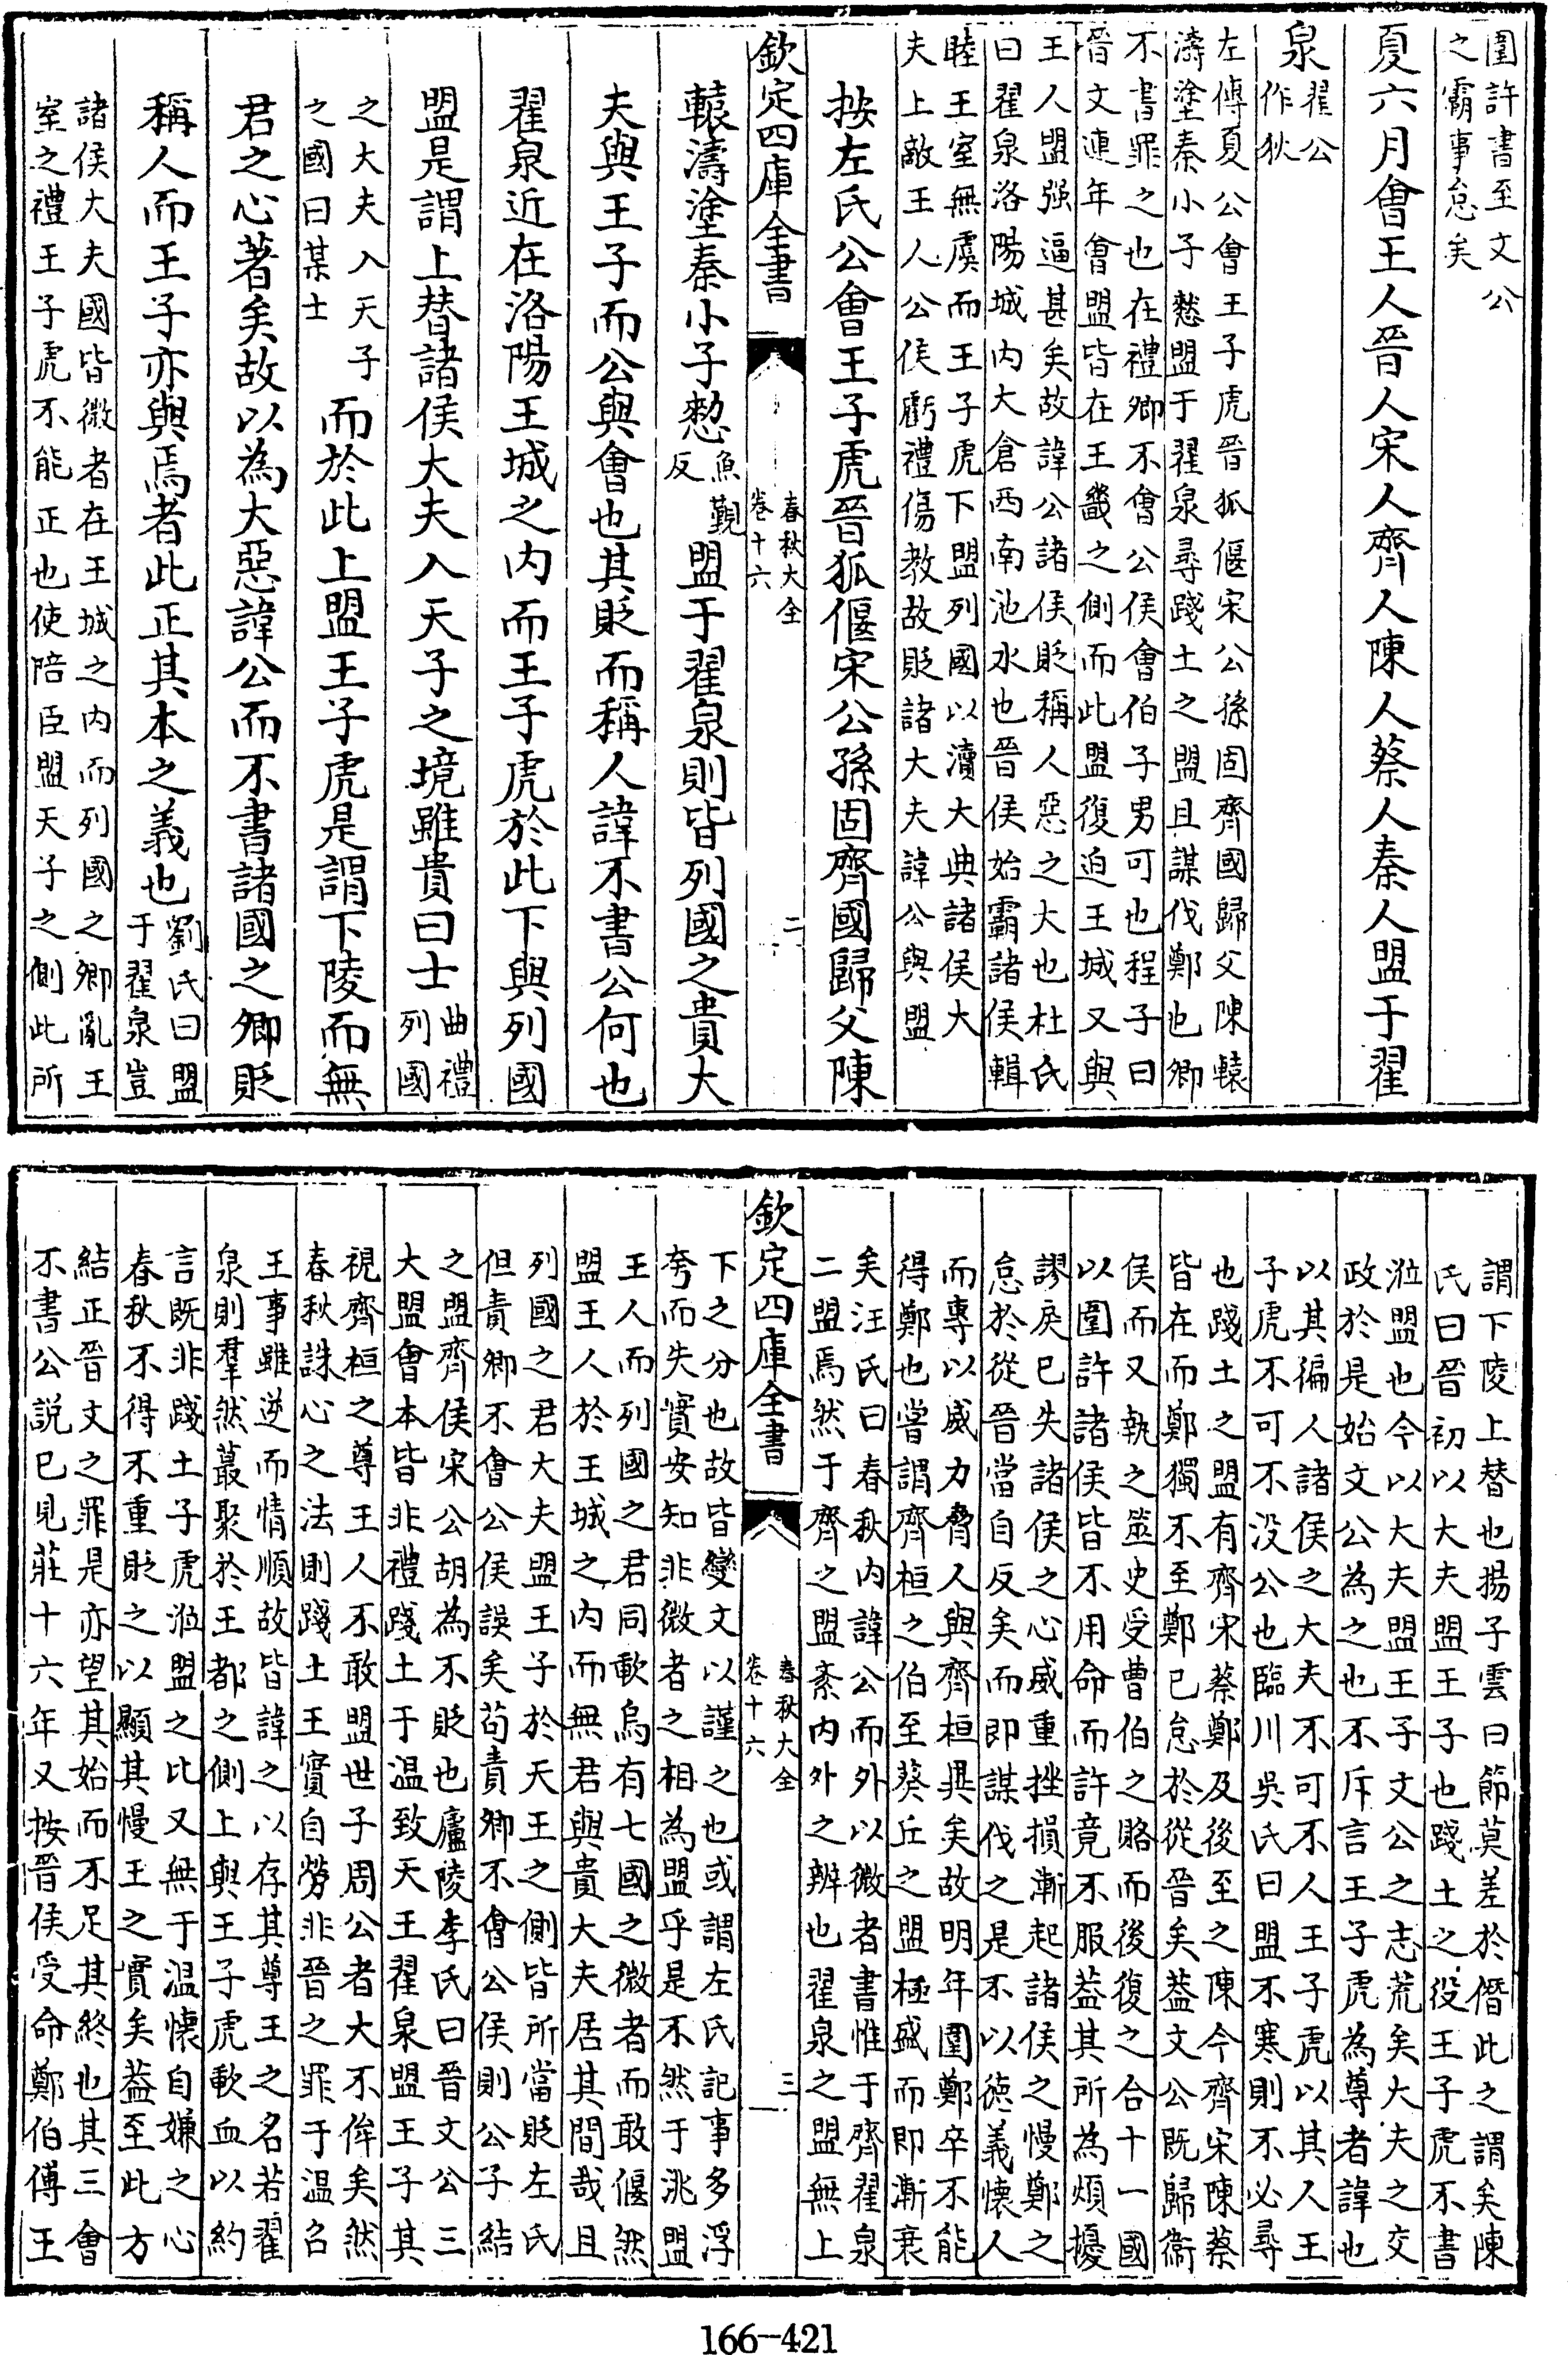 圍許書至文公
之霸事怠矣
夏六月會王人晉人宋人齊人陳人蔡人秦人盟于翟
泉翟公
作狄
左傳夏公會王子虎晉狐偃宋公孫固齊國歸父陳轅
濤塗秦小子憖盟于翟泉尋踐土之盟且謀伐鄭也卿
不書罪之也在禮卿不會公侯會伯子男可也程子曰
晉文連年會盟皆在王畿之側而此盟復迫王城又與
王人盟强逼甚矣故諱公諸侯貶稱人惡之大也杜氏
曰翟泉洛陽城内大倉西南池水也晉侯始霸諸侯輯
睦王室無虞而王子虎下盟列國以瀆大典諸侯大
夫上敵王人公侯虧禮傷教故貶諸大夫諱公與盟
按左氏公會王子虎晉狐偃宋公孫固齊國歸父陳
欽定四庫全書
春秋大全
卷十六
二
轅濤塗秦小子憖魚覲
反盟于翟泉則皆列國之貴大
夫與王子而公與會也其貶而稱人諱不書公何也
翟泉近在洛陽王城之内而王子虎於此下與列國
盟是謂上替諸侯大夫入天子之境雖貴曰士曲禮
列國
之大夫入天子
之國曰某士而於此上盟王子虎是謂下陵而無
君之心著矣故以為大惡諱公而不書諸國之卿貶
稱人而王子亦與焉者此正其本之義也劉氏曰盟
于翟泉豈
諸侯大夫國皆微者在王城之内而列國之卿亂王
室之禮王子虎不能正也使陪臣盟天子之側此所
謂下陵上替也揚子雲曰節莫差於僭此之謂矣陳
氏曰晉初以大夫盟王子也踐土之役王子虎不書
涖盟也今以大夫盟王子文公之志荒矣大夫之交
政於是始文公為之也不斥言王子虎為尊者諱也
以其徧人諸侯之大夫不可不人王子虎以其人王
子虎不可不没公也臨川吳氏曰盟不寒則不必尋
也踐土之盟有齊宋蔡鄭及後至之陳今齊宋陳蔡
皆在而鄭獨不至鄭已怠於從晉矣葢文公既歸衞
侯而又執之筮史受曹伯之賂而後復之合十一國
以圍許諸侯皆不用命而許竟不服葢其所為煩擾
謬戾已失諸侯之心威重挫損漸起諸侯之慢鄭之
怠於從晉當自反矣而即謀伐之是不以德義懷人
而專以威力脅人與齊桓異矣故明年圍鄭卒不能
得鄭也嘗謂齊桓之伯至葵丘之盟極盛而即漸衰
矣汪氏曰春秋内諱公而外以微者書惟于齊翟泉
二盟焉然于齊之盟紊内外之辨也翟泉之盟無上
欽定四庫全書
春秋大全
卷十六
三
下之分也故皆變文以謹之也或謂左氏記事多浮
夸而失實安知非微者之相為盟乎是不然于洮盟
王人而列國之君同歃烏有七國之微者而敢偃然
盟王人於王城之内而無君與貴大夫居其間哉且
列國之君大夫盟王子於天王之側皆所當貶左氏
但責卿不會公侯誤矣苟責卿不會公侯則公子結
之盟齊侯宋公胡為不貶也廬陵李氏曰晉文公三
大盟會本皆非禮踐土于温致天王翟泉盟王子其
視齊桓之尊王人不敢盟世子周公者大不侔矣然
春秋誅心之法則踐土王實自勞非晉之罪于温召
王事雖逆而情順故皆諱之以存其尊王之名若翟
泉則羣然蕞聚於王都之側上與王子虎歃血以約
言既非踐土子虎涖盟之比又無于温懷自嫌之心
春秋不得不重貶之以顯其慢王之實矣葢至此方
結正晉文之罪是亦望其始而不足其終也其三會
不書公説已見莊十六年又按晉侯受命鄭伯傅王
166-421